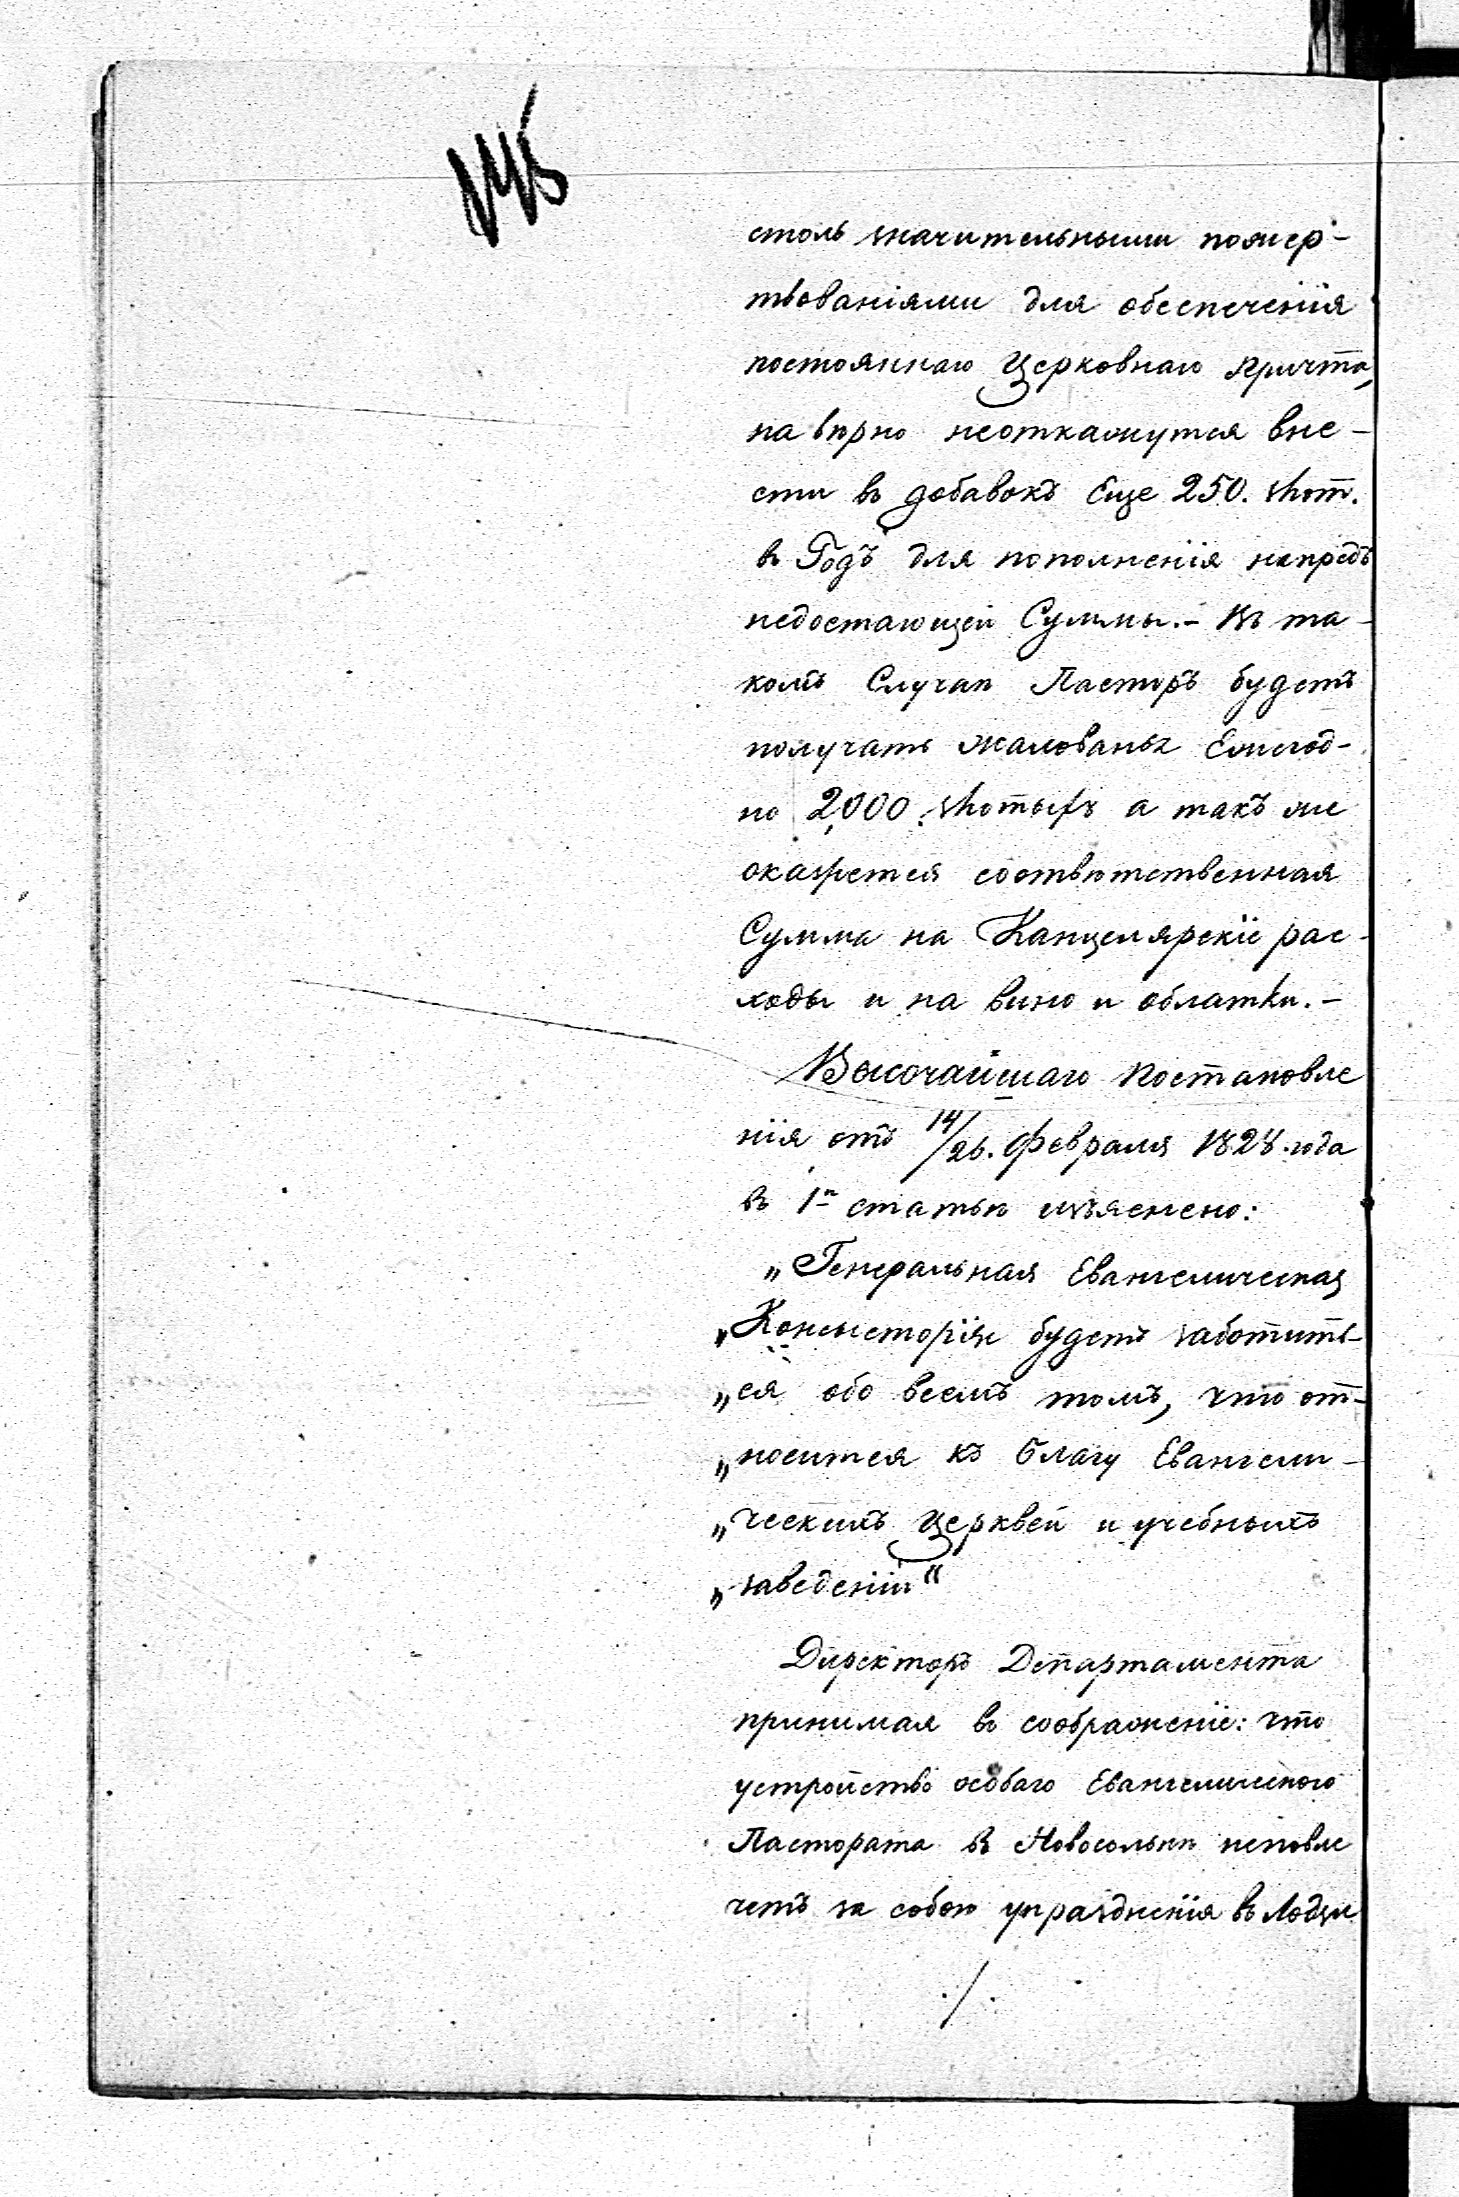 столь значительными пожер-
твованіями для обеспеченія
постояннаго Церковнаго причта,
на вѣрно неоткажутся вне-
сти въ добавокъ Еще 250. злот.
въ Годъ для пополненія напредъ
недостающей Суммы.- Въ та-
комъ Случаѣ Пасторъ будетъ
получать жалованья Ежегод-
но 2000 злотыхъ а такъ же
окажется соотвѣтственная
Сумма на Канцелярскіе рас-
ходы и на вино и облатки.-
Высочайшаго постановле
нія отъ 14/26. февраля 1828 года
въ 1й статьѣ изъяснено:
„Генеральная Евангелическая
„Консысторія будетъ заботить-
„ся обо всемъ томъ, что от-
„носится къ благу Евангели-
„ческихъ Церквей и учебныхъ
„заведеній“
Директоръ Департамента
принимая въ соображеніе: что
устройство особаго Евангелического
Пастората въ Новосольнѣ неповле
четъ за собою упраздненія въ Лодзи
./.